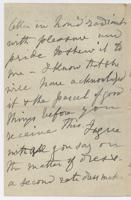 with pleasure and
pride to show it to
me - I know that she
will have acknowledged
it & the parcel of good
things before you
receive this. I agree
with all you say on
the matter of dress.
a second rate dressmaker